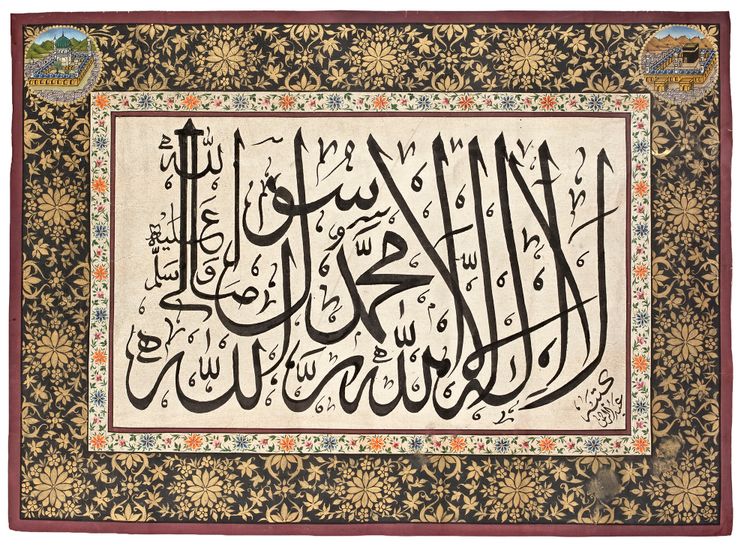 لا اله الا الله محمد رسول الله
صلى الله عليه وسلم